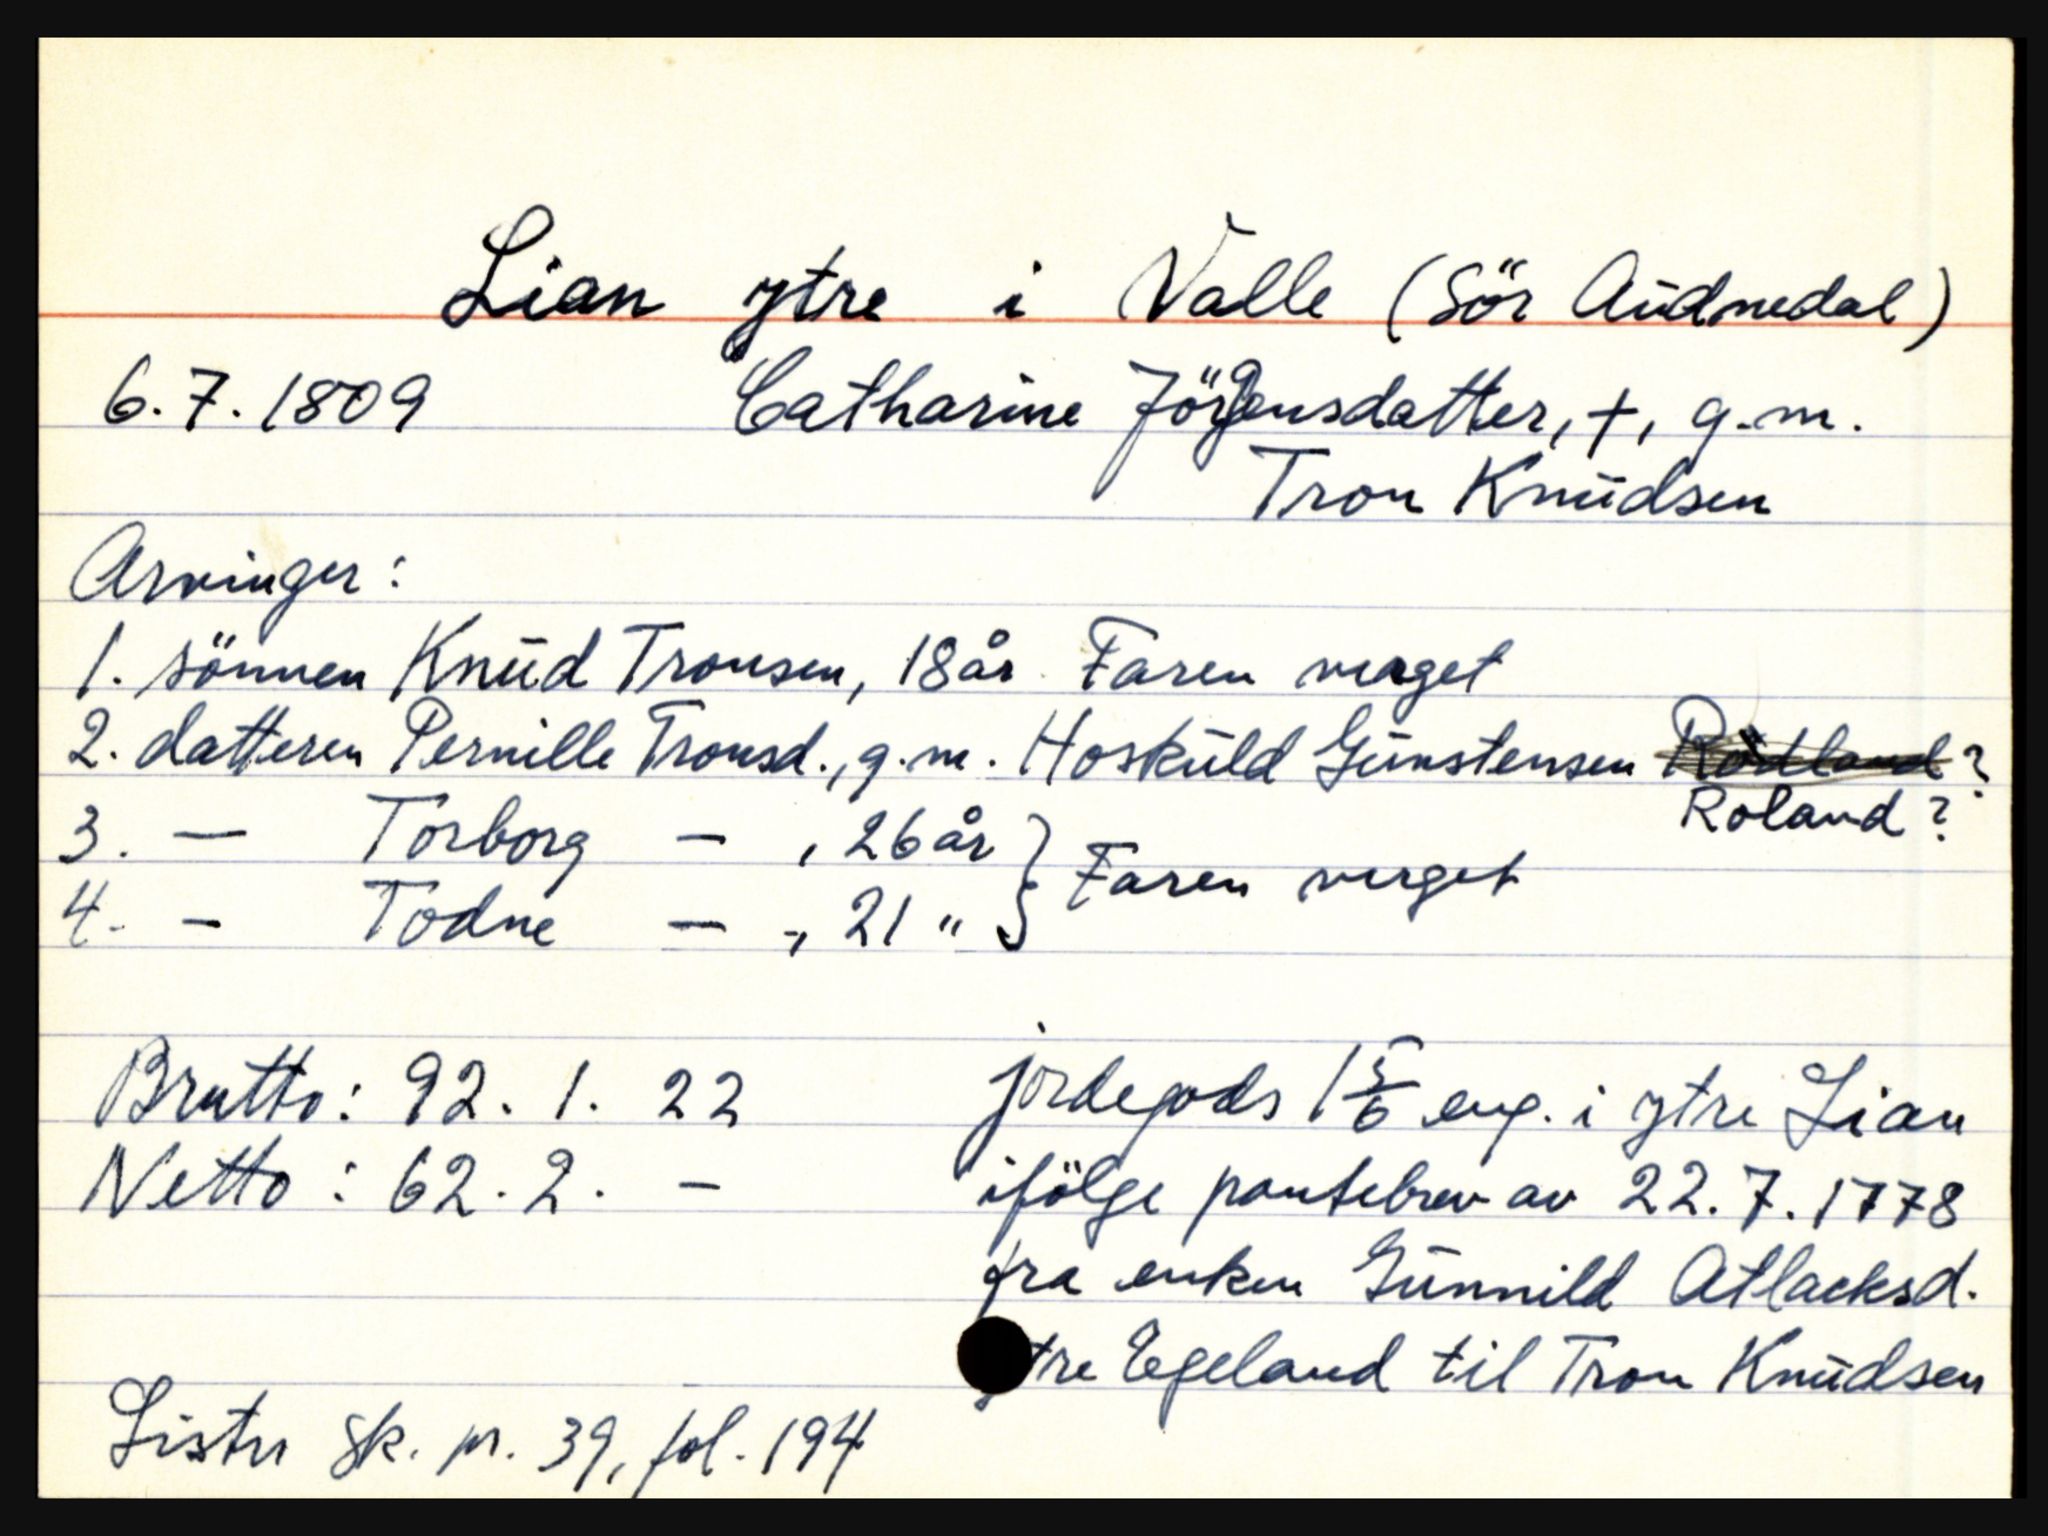 Lian ytre i Valle (Sör Audnedal)
6.7.1809 Catharine Jörgensdatter, +, g.m.
Tron Knudsen
Arvinger:
1. sönnen Knud Tronsen, 18 år. Faren verget
2. datteren Pernille Tronsd., g.m. Hoskuld Gunstensen Rödland?
Roland?
3. — Torborg — , 26 år } Faren verget
4. — Todne — , 21 "
Brutto: 92. 1. 22
Netto: 62. 2. —
jordegods 1 5/6 eng. i ytre Lian
ifölge pantebrev av 22.7.1778
fra enken Gunnild Atlacksd.
ytre Egeland til Tron Knudsen
Lister sk. pr. 39, fol. 194